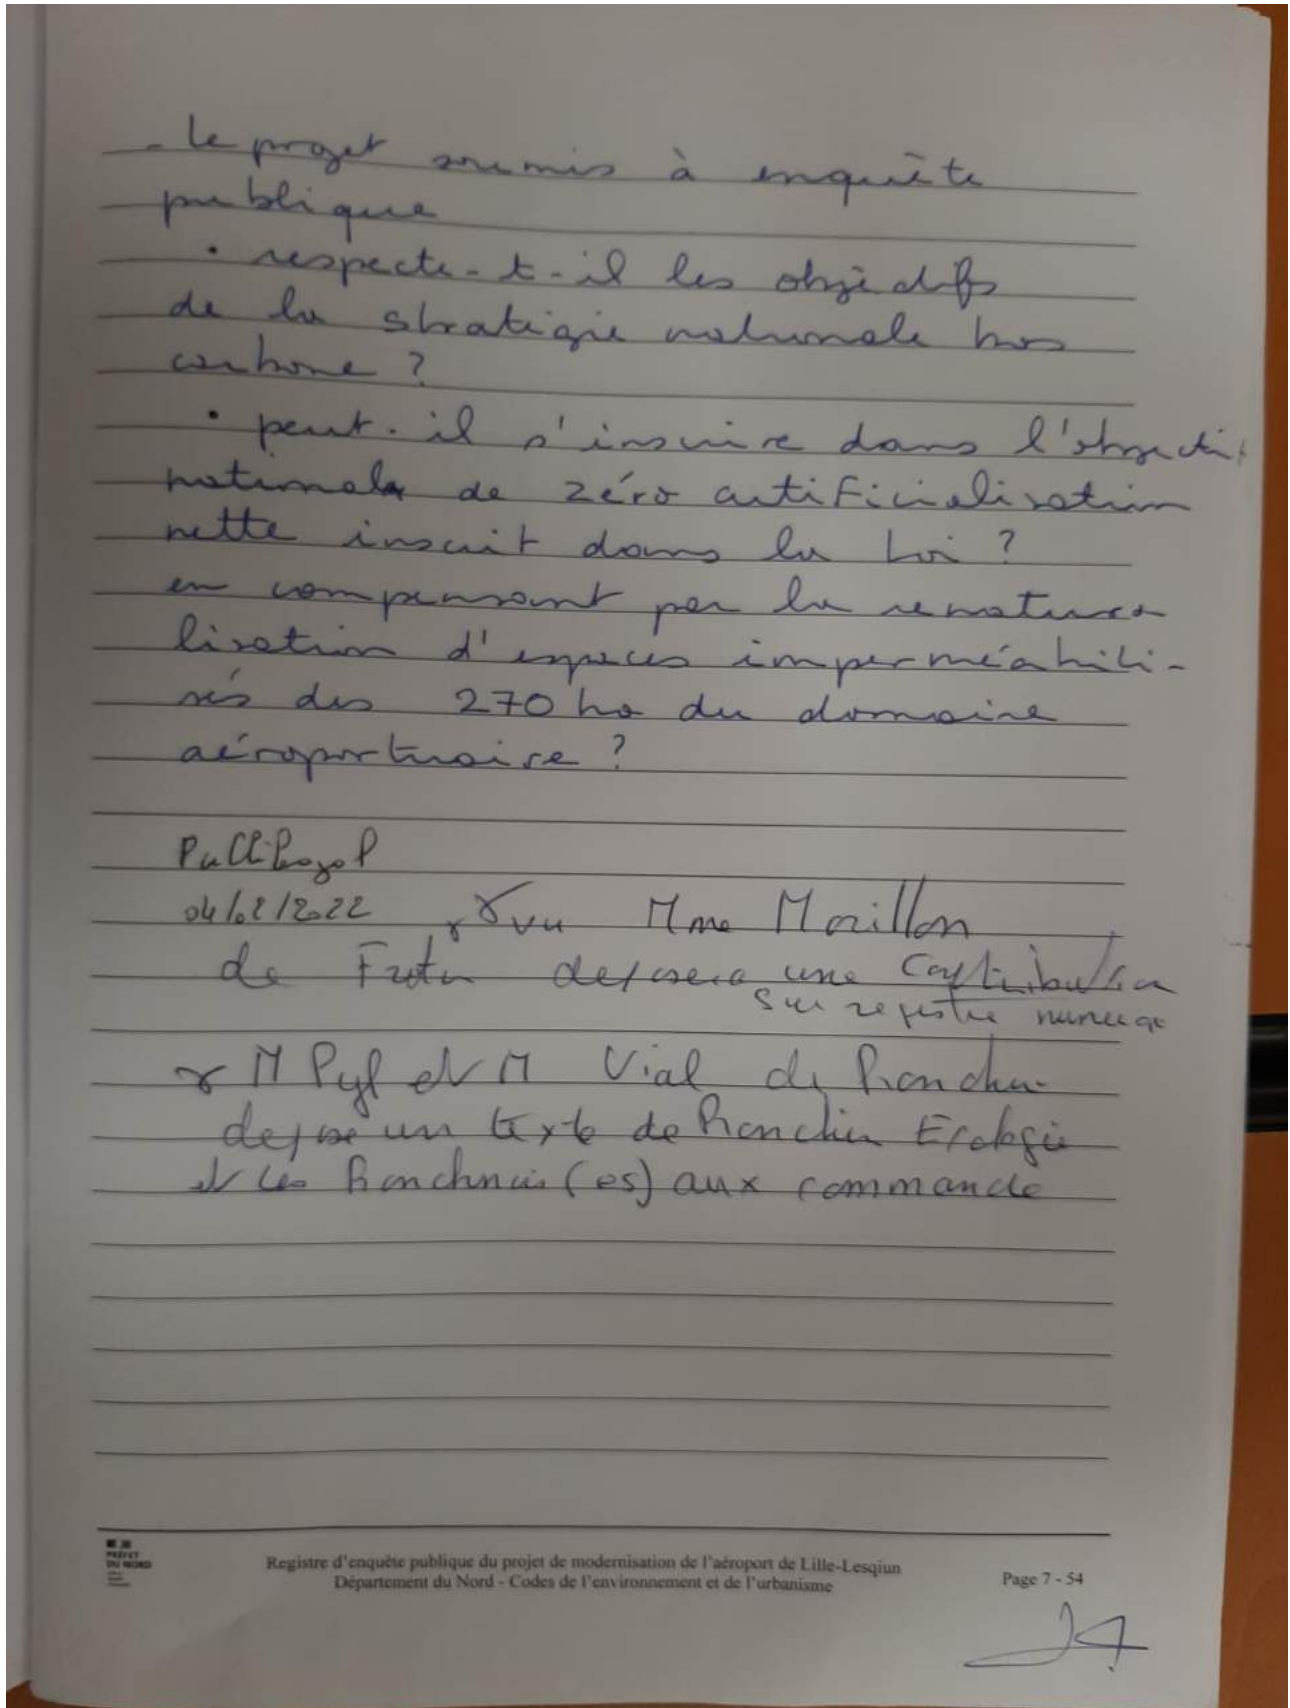 - le projet soumis à enquête
publique
• respecte-t-il les objectifs
de la stratégie nationale bas
carbone ?
• peut-il s'inscrire dans l'objectif
nationale de zéro artificialisation
nette inscrit dans la loi ?
en compensant par la renatura
lisation d'espaces imperméabili-
sés des 270 ha du domaine
aéroportuaire ?
04/02/2022 vu Mme Morillon
de deposera une Contribution
sur registre
M Pyl et M Vial de Ronchin
depose un texte de Ronchin Ecologie
et les Ronchinois(es) aux commande
PRÉFET
DU NORD
Registre d'enquête publique du projet de modernisation de l'aéroport de Lille-Lesqiun
Département du Nord - Codes de l'environnement et de l'urbanisme
Page 7 - 54